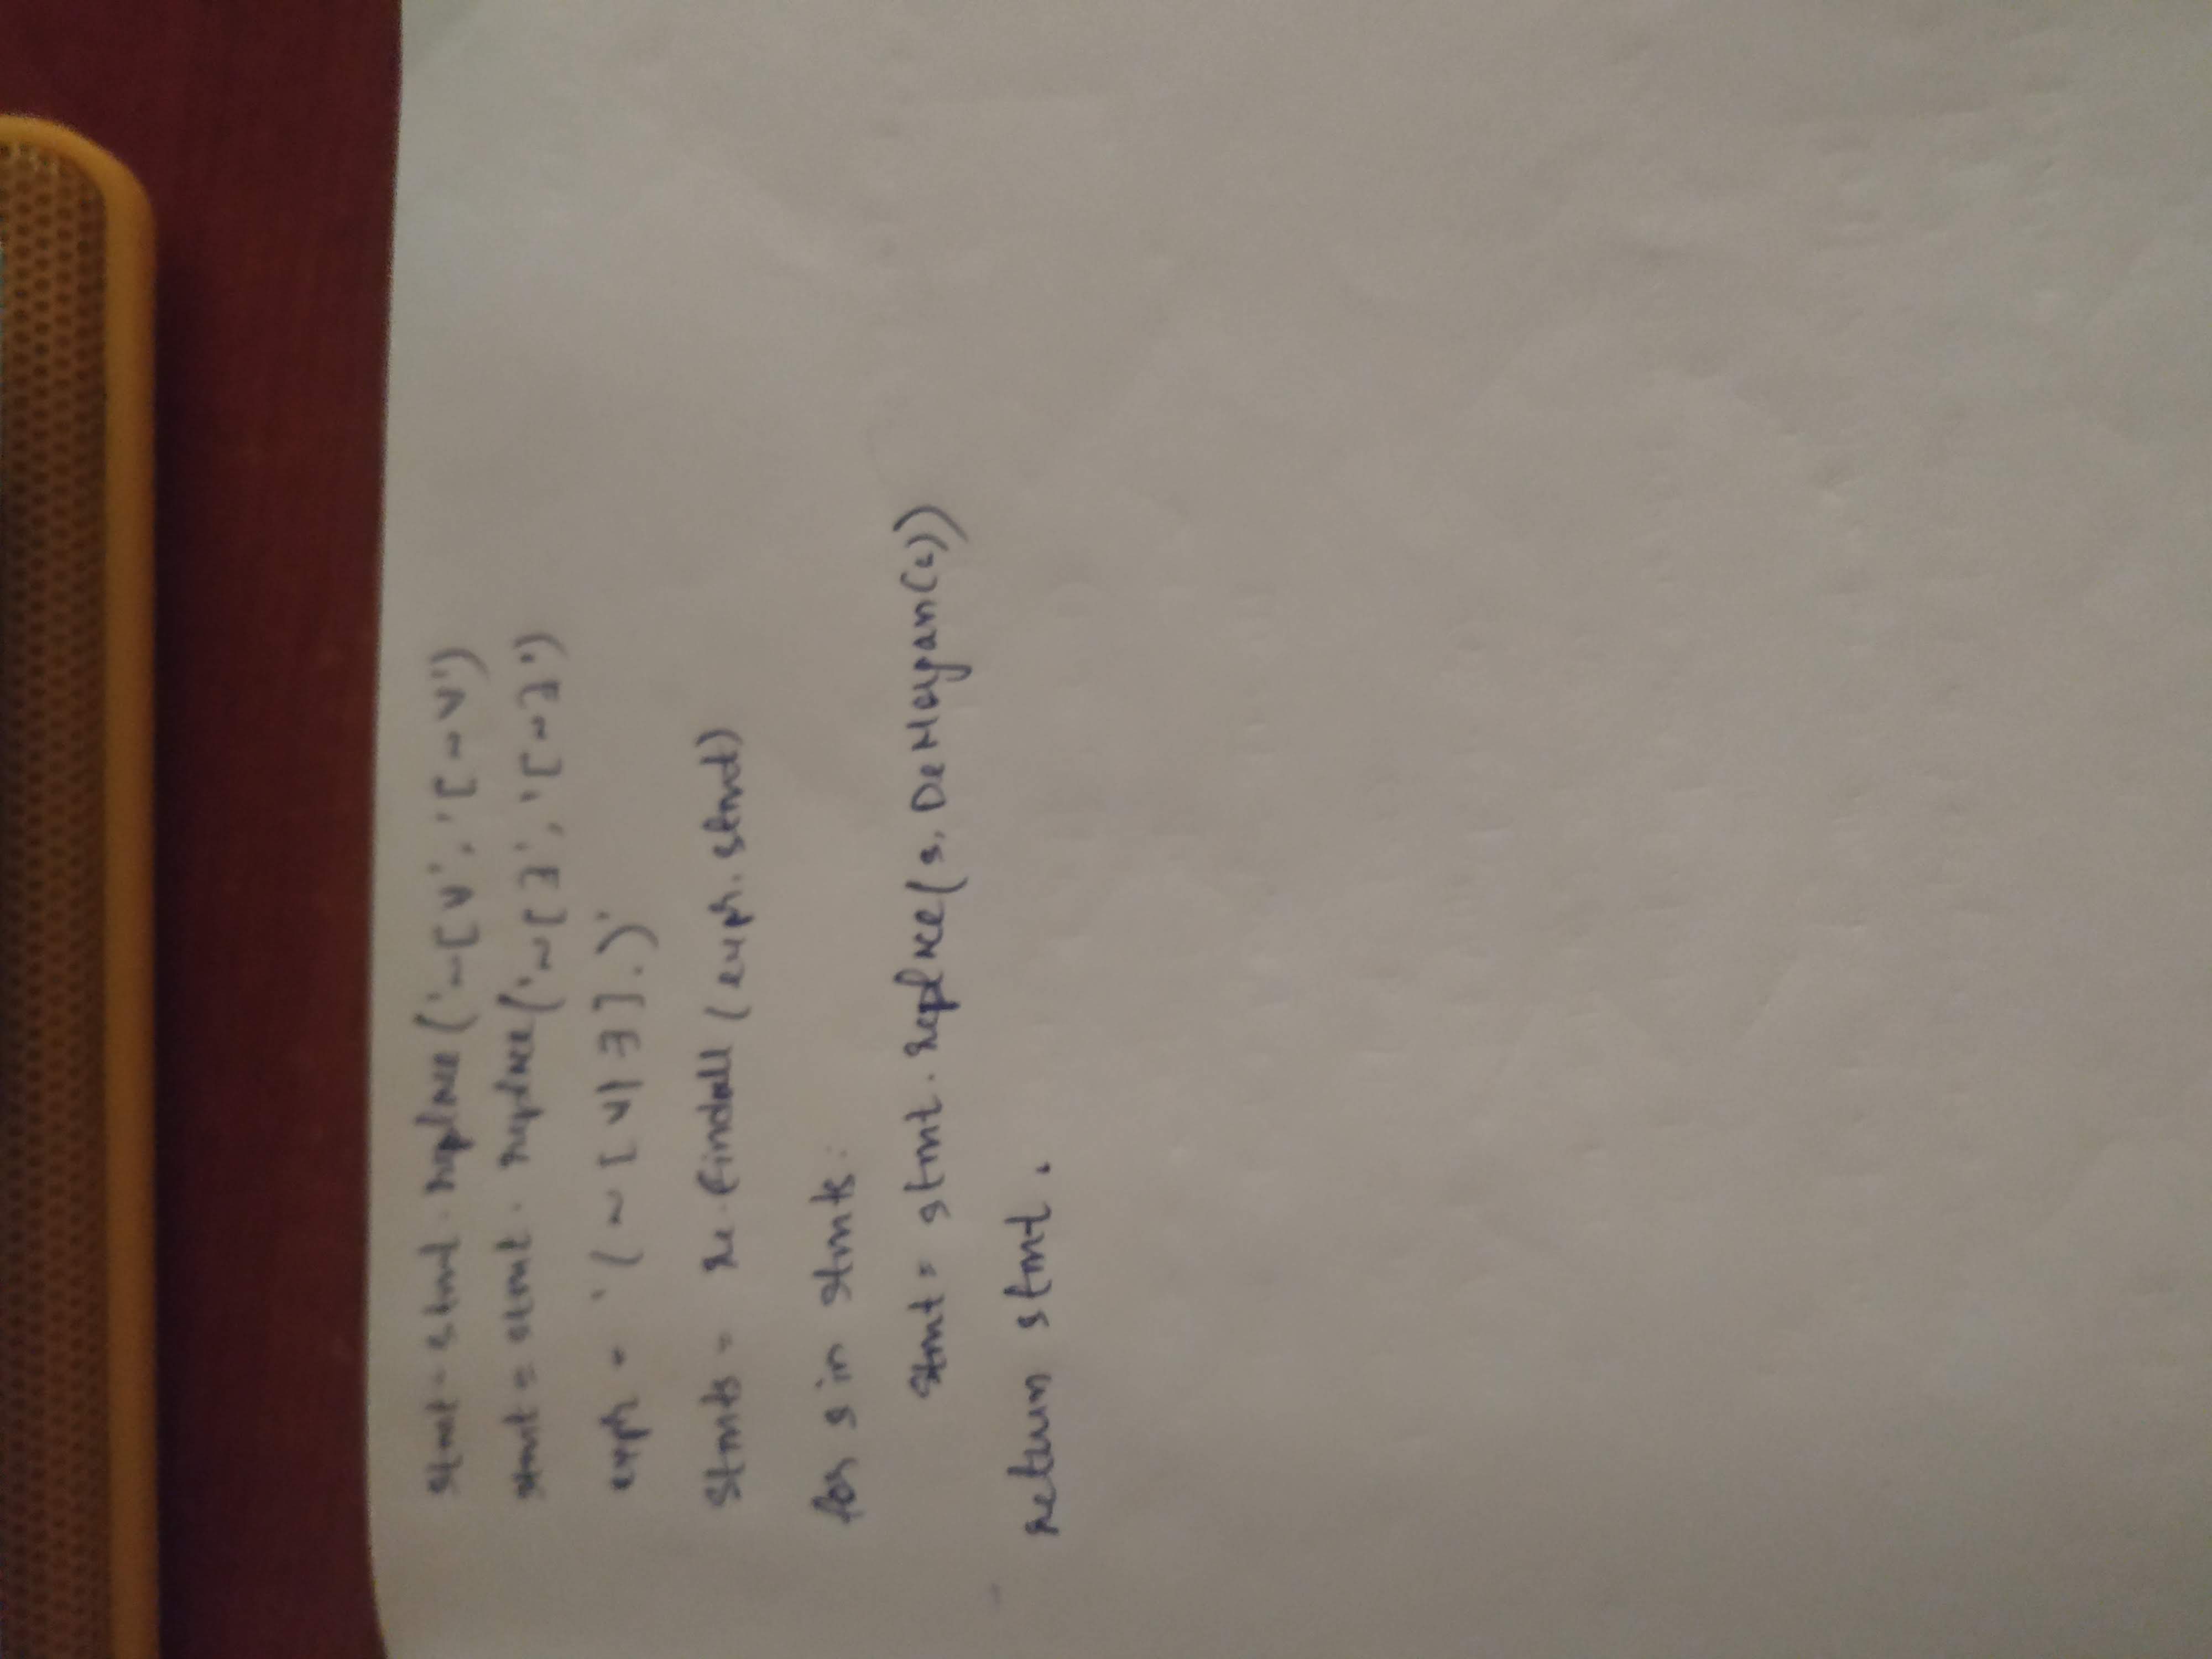 stmt = stmt.replace('~[∀','[~∀')
stmt = stmt.replace('~[∃','[~∃')
expr = '(~[∀|∃].)'
stmts = re.findall(expr, stmt)
for s in stmts:
stmt = stmt.replace(s, DeMorgan(s))
return stmt.